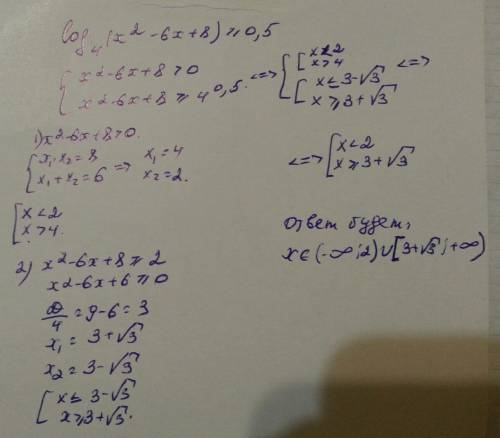 log₄(x²-6x+8)⩾0,5
{ x²-6x+8>0
x²-6x+8⩾4^0,5. <=> { [ x<2
x>4
[ x≤3-√3
x⩾3+√3 <=>
<=> [ x<2
x⩾3+√3
1) x²-6x+8>0.
{ x₁·x₂=8
x₁+x₂=6 => x₁=4
x₂=2.
[ x<2
x>4.
2) x²-6x+8⩾2
x²-6x+6⩾0
D/4=9-6=3
x₁=3+√3
x₂=3-√3
[ x≤3-√3
x⩾3+√3.
Ответ будет,
x∈(-∞;2)∪[3+√3;+∞)